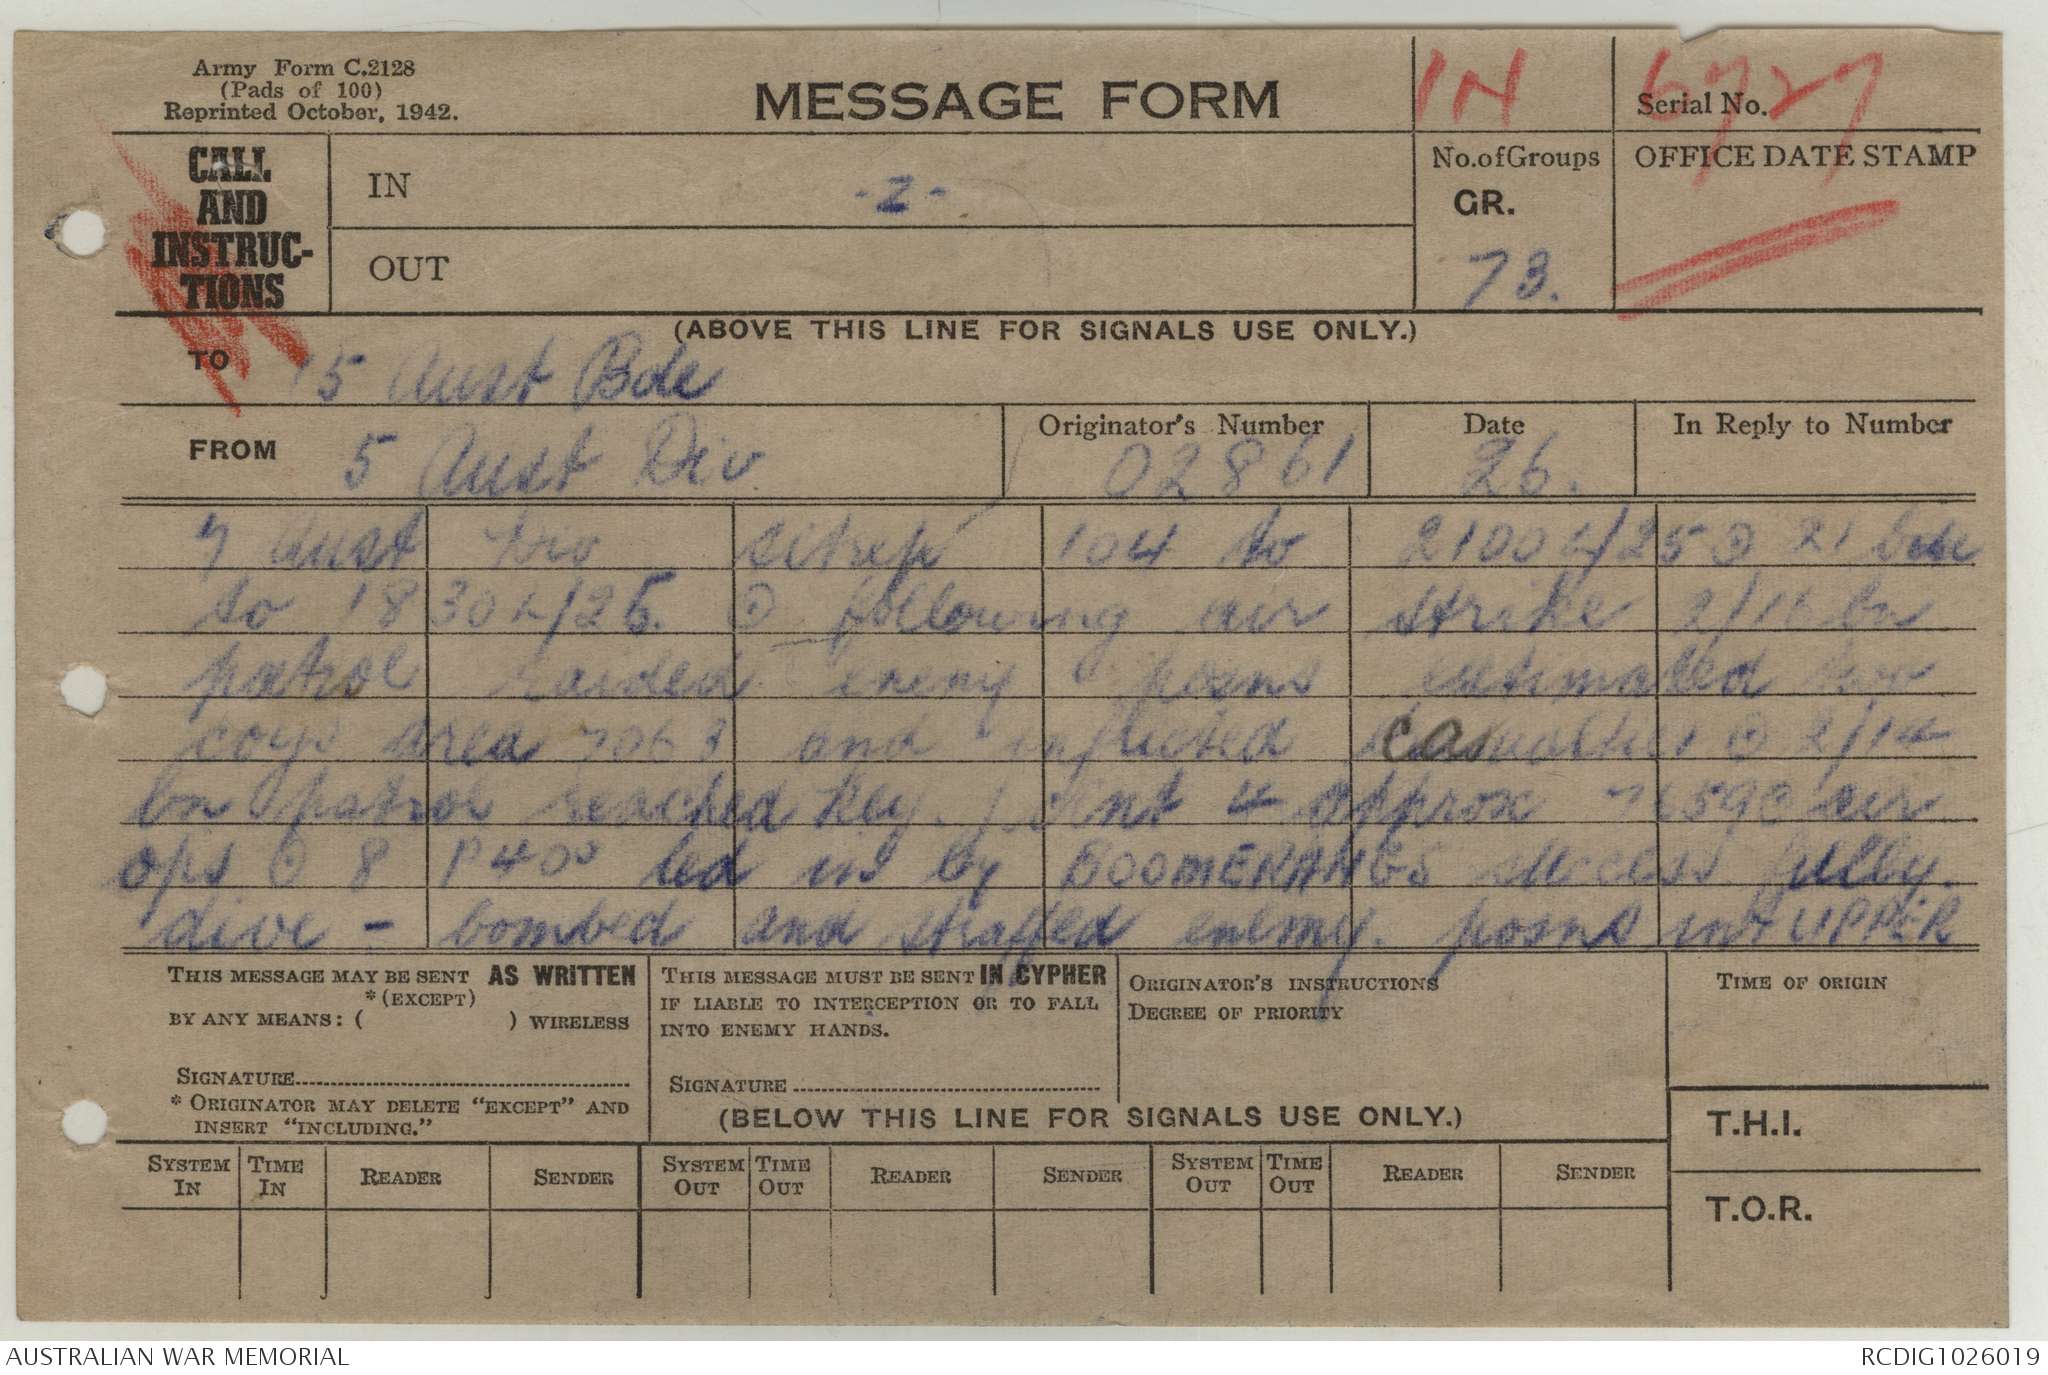 Army Form C.2128
(Pads of 100)
Reprinted October, 1942.
MESSAGE FORM
IN
Serial No. 6727
CALL
AND
INSTRUC-
TIONS
IN
-Z-
OUT
No. of Groups
GR.
73.
OFFICE DATE STAMP
(ABOVE THIS LINE FOR SIGNALS USE ONLY.)
TO 15 Aust Bde
FROM 5 Aust Div.
Originator's Number
02861
Date
26.
In Reply to Number
7 Aust Div sitrep 104 to 2100L/25 ⊙ 21 bde
to 1830L/25. ⊙ following air strike 2/16 bn
patrol raided enemy posns estimated two
coys area 7063 and inflicted casualties ⊙ 2/14
bn patrol reached Key. Pint 4 approx 76590 air
ops ⊙ 8 P40s led in by BOOMERANGS successfully
dive - bombed and straffed enemy posns in UPPER
THIS MESSAGE MAY BE SENT AS WRITTEN
*(EXCEPT)
BY ANY MEANS: ( ) WIRELESS
SIGNATURE
* ORIGINATOR MAY DELETE "EXCEPT" AND
INSERT "INCLUDING."
THIS MESSAGE MUST BE SENT IN CYPHER
IF LIABLE TO INTERCEPTION OR TO FALL
INTO ENEMY HANDS.
SIGNATURE
ORIGINATOR'S INSTRUCTIONS
DEGREE OF PRIORITY
TIME OF ORIGIN
(BELOW THIS LINE FOR SIGNALS USE ONLY.)
T.H.I.
T.O.R.
SYSTEM IN
TIME IN
READER
SENDER
SYSTEM OUT
TIME OUT
READER
SENDER
SYSTEM OUT
TIME OUT
READER
SENDER
AUSTRALIAN WAR MEMORIAL
RCDIG1026019